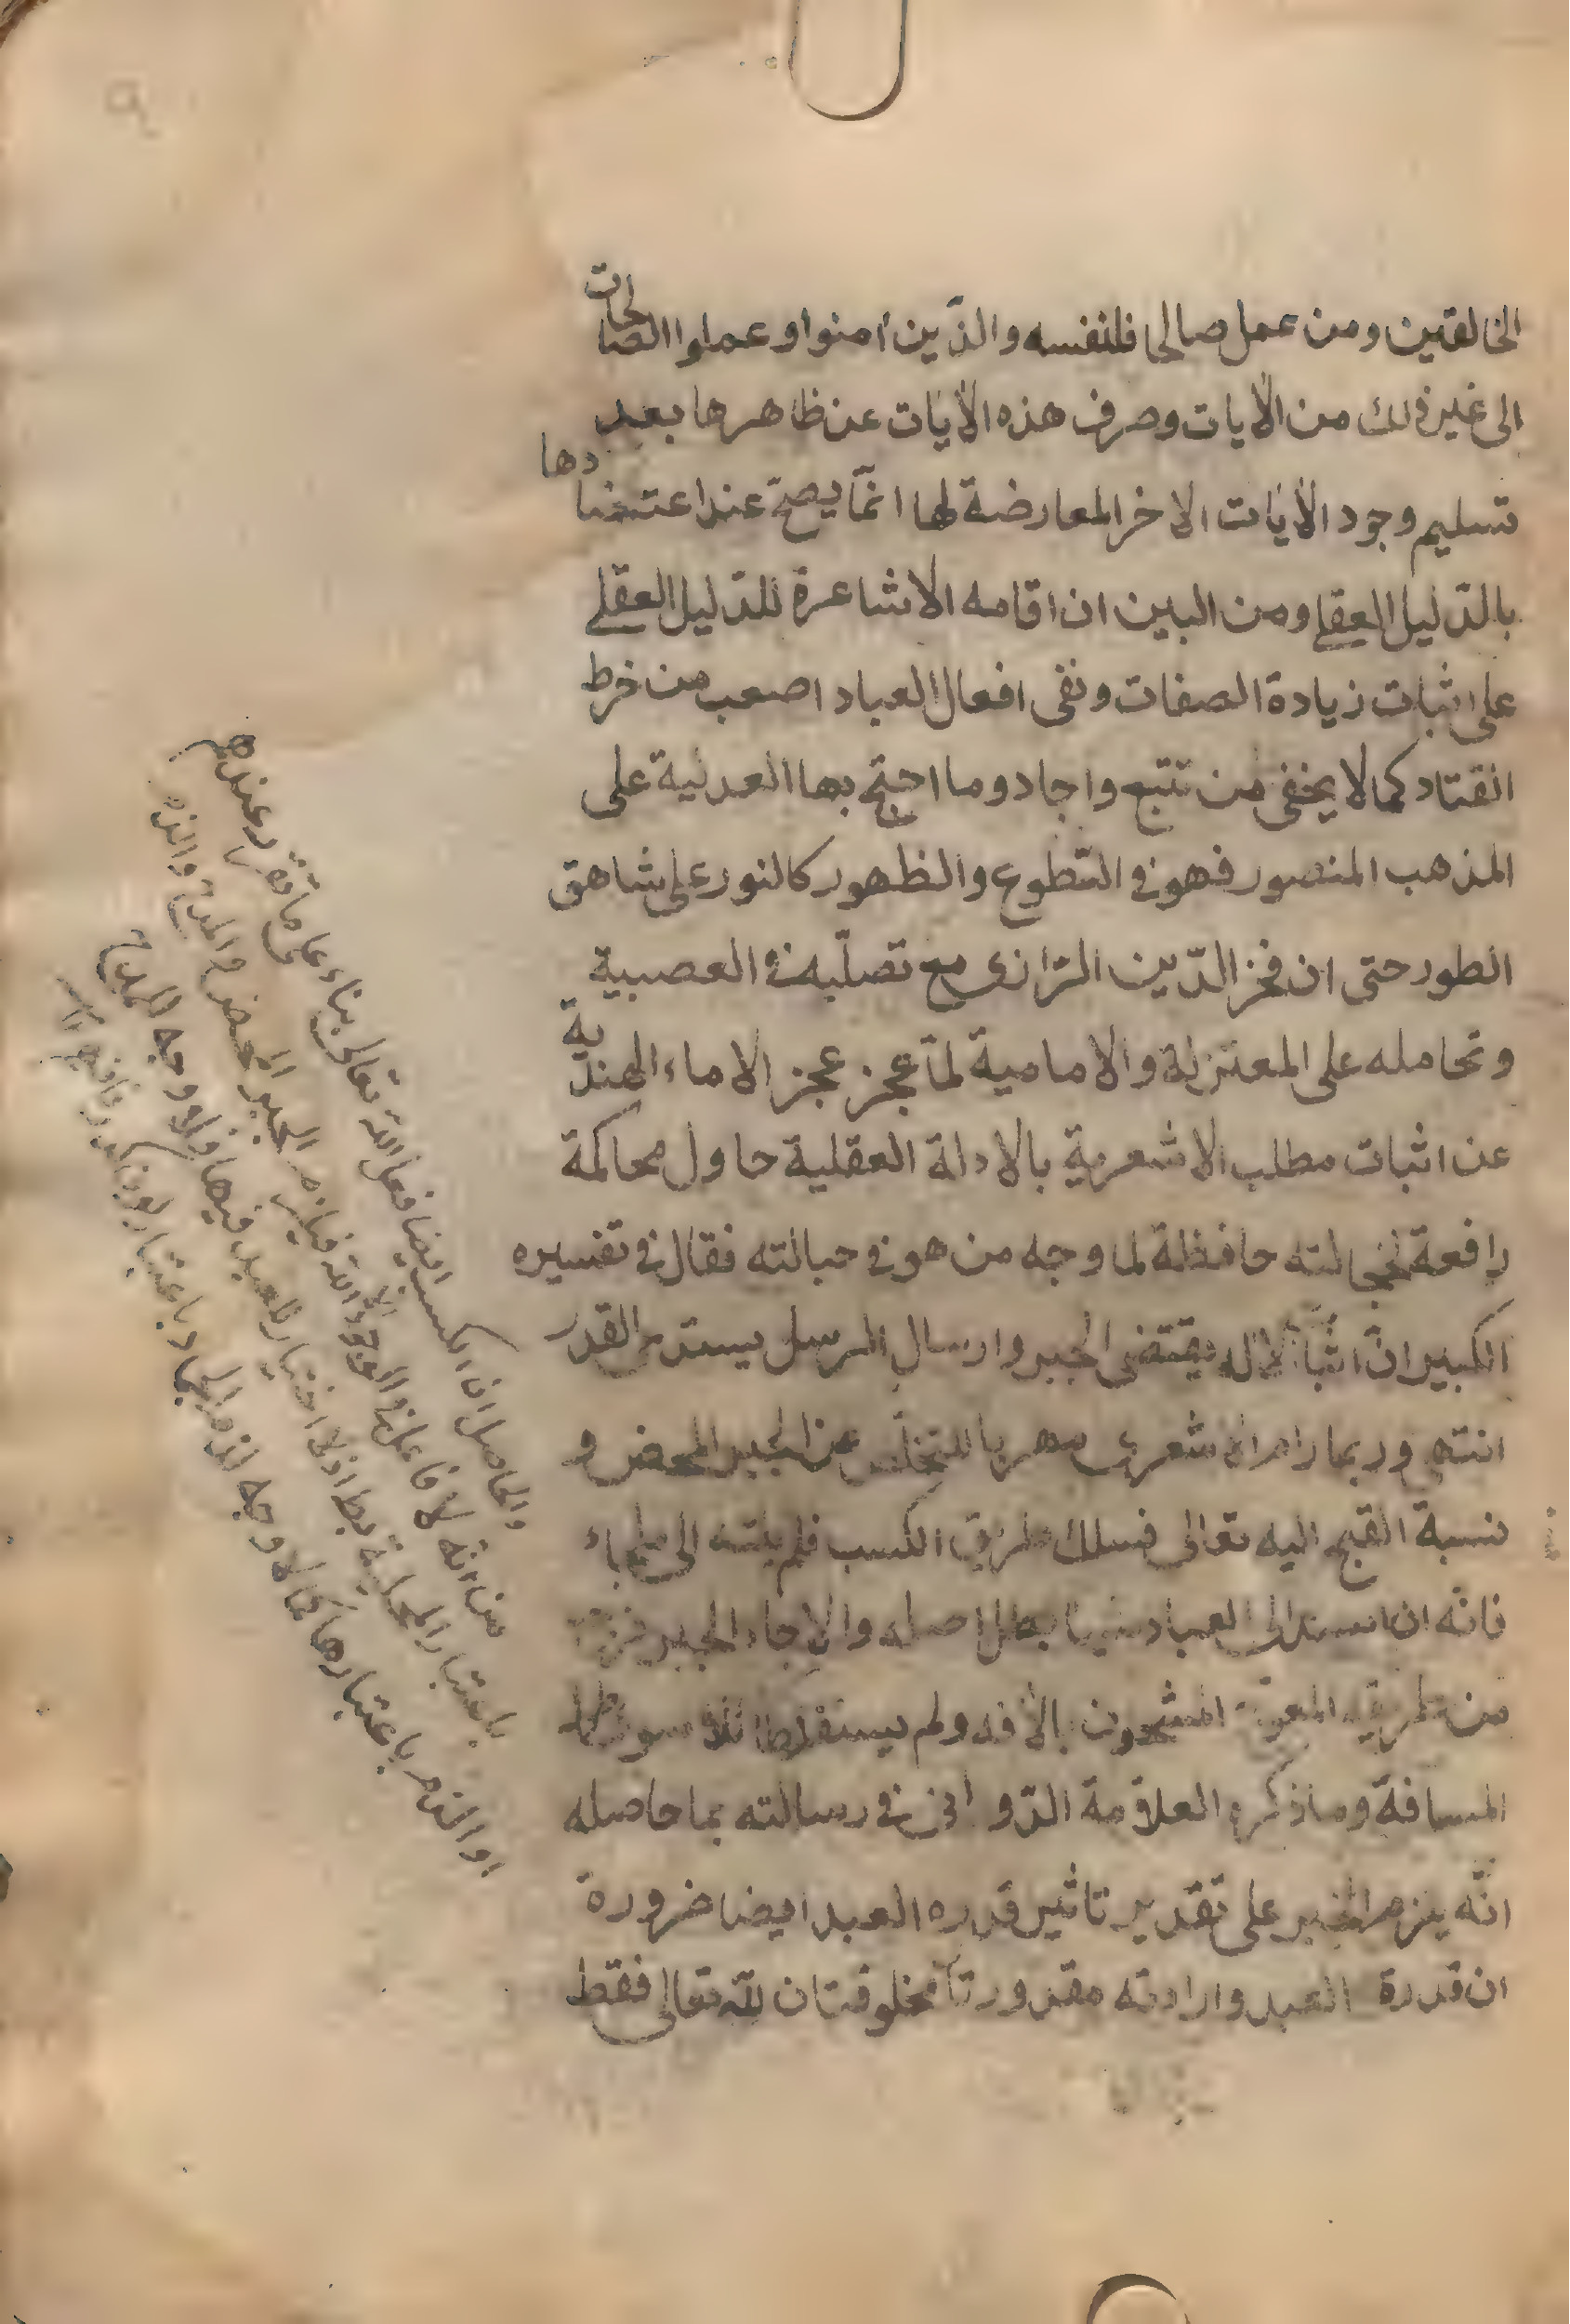 الخالقين ومن عمل صالحا فلنفسه والذين امنوا وعملوا الصالحات
الى غير ذلك من الآيات وصرف هذه الآيات عن ظاهرها بعد
تسليم وجود الآيات الاخر المعارضة لها انما يصح عند اعتضادها
بالدليل العقلي ومن البين ان اقامه الاشاعرة للدليل العقلي
على اثبات زيادة الصفات ونفى افعال العباد اصعب من خرط
القتاد كما لا يخفى من تتبع واجاد وما احتج بها العدلية على
المذهب المنصور فهو في السطوع والظهور كالنور على شاهق
الطور حتى ان فخر الدين الرازى مع تصلبه في العصبية
وتحامله على المعتزلة والامامية لما عجز عجز الاماء الهندية
عن اثبات مطلب الاشعرية بالادلة العقلية حاول محاكمة
رافعة لخجالته حافظة لما وجه من هو في حبالته فقال في تفسيره
الكبير ان اثبات الاله يقتضى الجبر وارسال الرسل يستدعى القدر
انتهى وربما رام الاشعرى مهربا للتخلص عن الجبر المحض و
نسبة القبح اليه تعالى فسلك طريق الكسب فلم يلته الى ملجاء
فانه ان اسند الى العباد شيئا بطل اصله والا جاء الجبر
من طريقه المشحون بالآفه ولم يستفد
المسافة وما ذكره العلامة الدوانى في رسالته بما حاصله
انه يلزم الجبر على تقدير تاثير قدره العبد ايضا ضرورة
ان قدرة العبد وارادته مقدورتا مخلوقتان لله تعالى فقط
والحاصل ان الكسب ايضا فعل الله تعالى بناء على ما تقرر عندهم
من انه لا فاعل في الوجود الا الله فيلزم الجبر المحض والمدح والذم
باعتبار المحلية اذ لا اختيار للعبد فيها فلا وجه للمدح
او الذم باعتبارها كما لا وجه لذم الجماد باعتبار